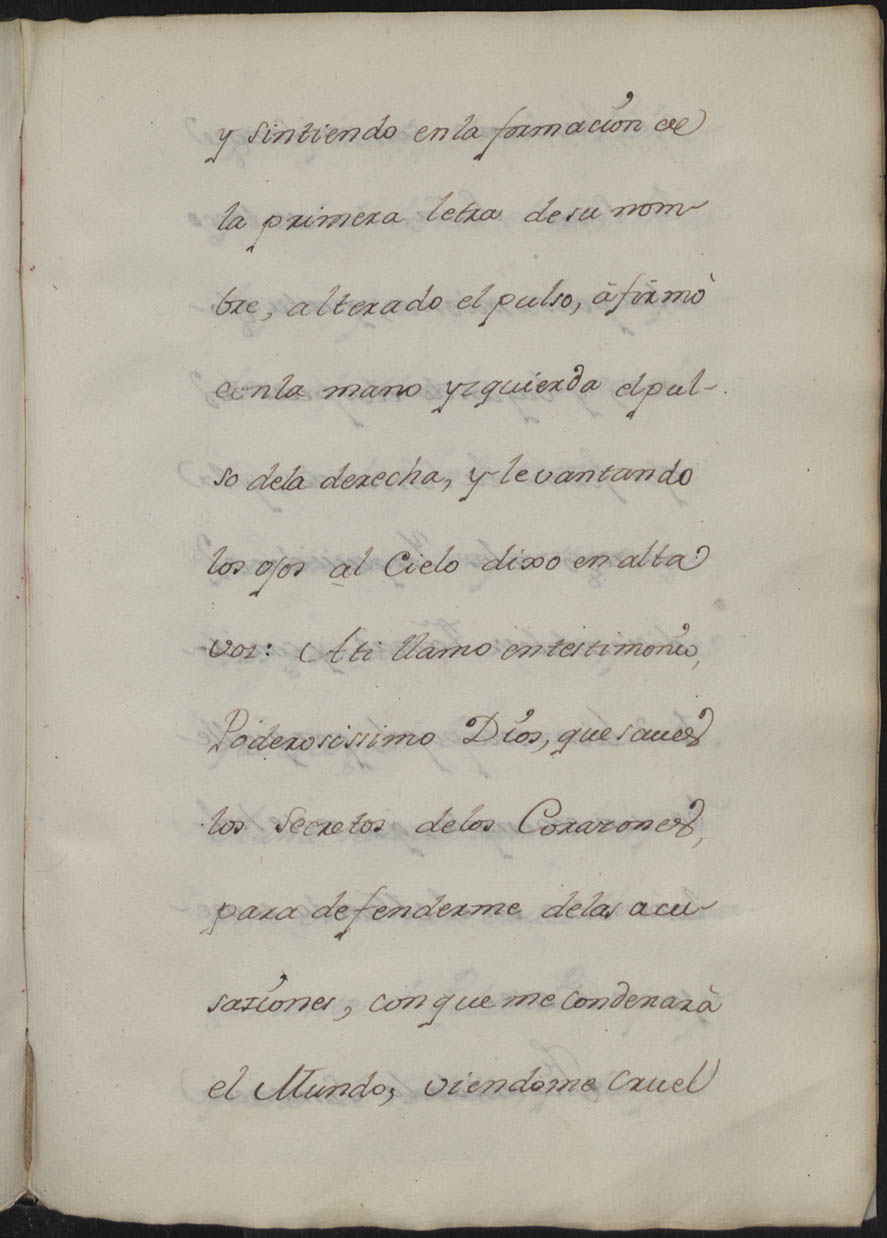 y sintiendo en la formación de
la primera letra de su nom-
bre, alterado el pulso, àfirmò
con la mano yzquierda el pul-
so dela derecha, y levantando
los ojos al Cielo dixo en alta
voz: A ti llamo en testimonio,
Poderosissimo Dios, que saues
los secretos delos Corazones,
para defenderme delas acu-
saziones, con que me condenarà
el Mundo; viendome cruel